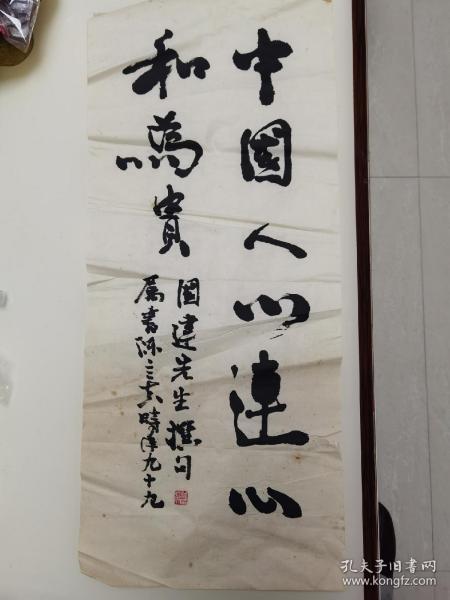 中國人心連心
和為貴
國建先生撰句
屬書陳立夫時年九十九
孔夫子旧书网
www.kongfz.com